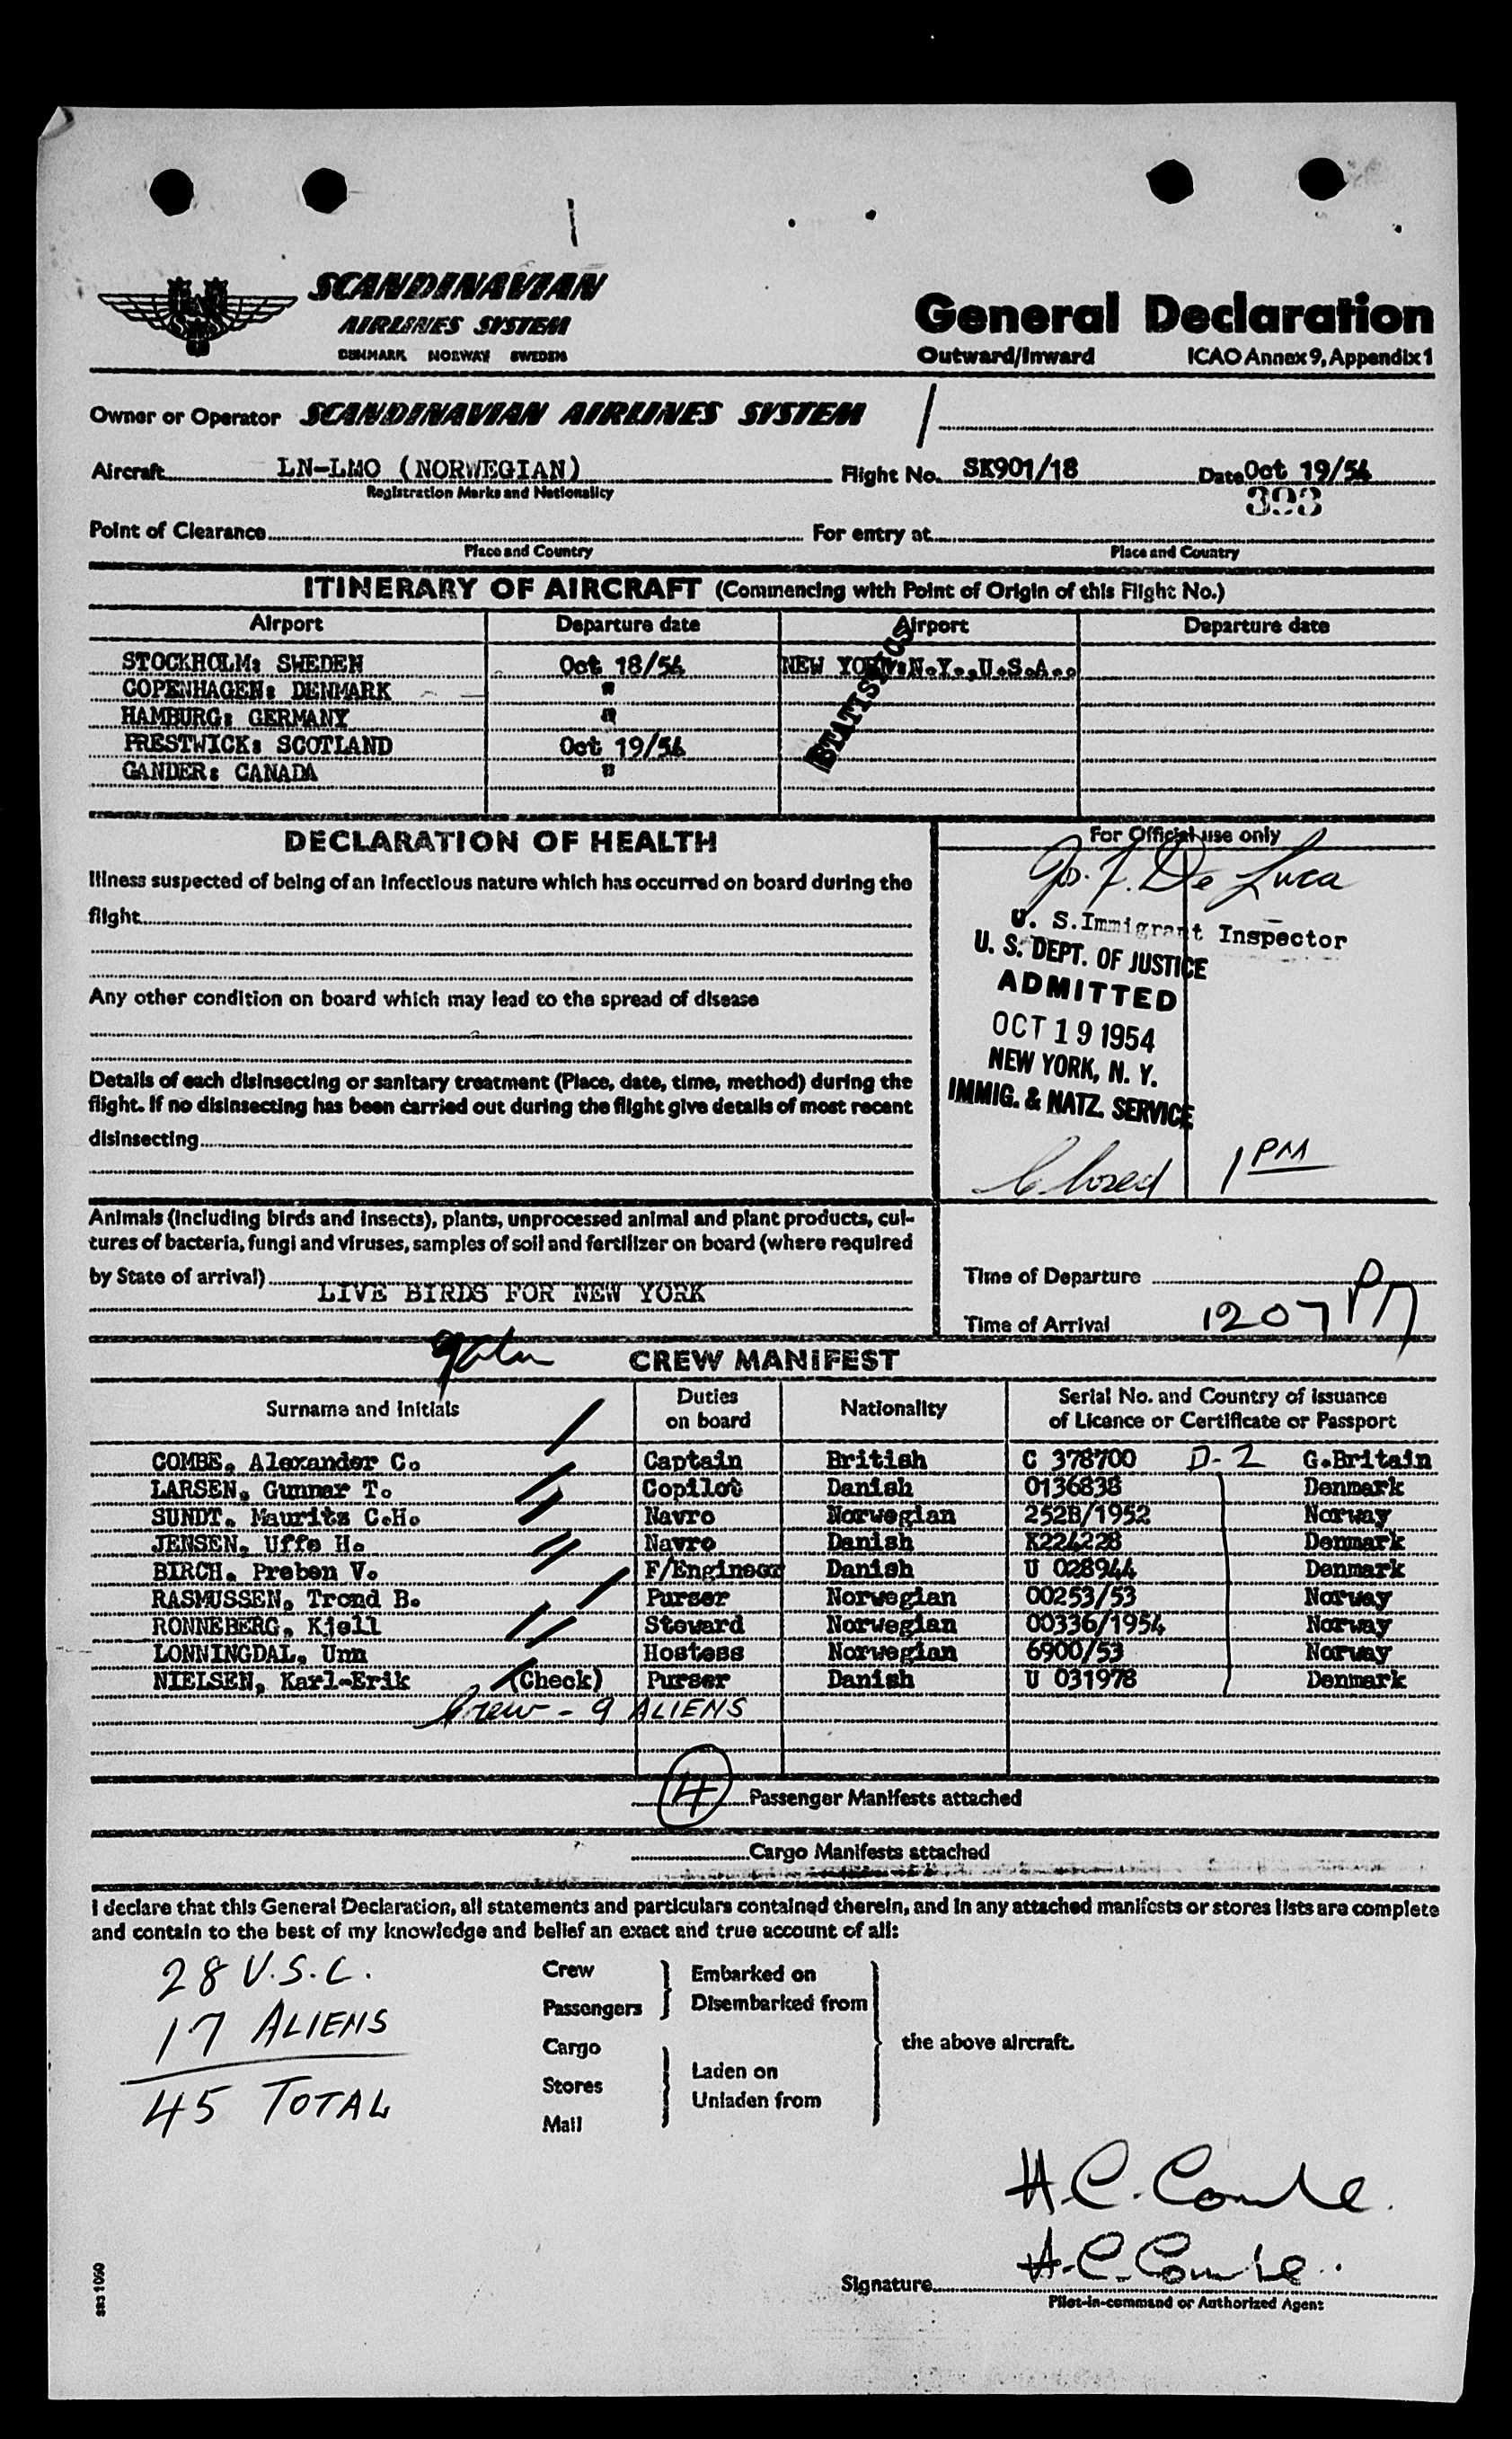 SCANDINAVIAN
AIRLINES SYSTEM
DENMARK NORWAY SWEDEN
General Declaration
Outward/Inward ICAO Annex 9, Appendix 1
Owner or Operator SCANDINAVIAN AIRLINES SYSTEM
Aircraft LN-LMO (NORWEGIAN) Flight No. SK901/18 Date Oct 19/54
Registration Marks and Nationality
393
Point of Clearance For entry at
Place and Country Place and Country
ITINERARY OF AIRCRAFT (Commencing with Point of Origin of this Flight No.)
Airport Departure date Airport Departure date
STOCKHOLM: SWEDEN Oct 18/54 NEW YORK:N.Y.,U.S.A..
COPENHAGEN: DENMARK "
HAMBURG: GERMANY "
PRESTWICK: SCOTLAND Oct 19/54
GANDER: CANADA "
STATISTICS
DECLARATION OF HEALTH
Illness suspected of being of an infectious nature which has occurred on board during the
flight
Any other condition on board which may lead to the spread of disease
Details of each disinsecting or sanitary treatment (Place, date, time, method) during the
flight. If no disinsecting has been carried out during the flight give details of most recent
disinsecting
For Official use only
Jos. F. De Luca
U. S. Immigrant Inspector
U. S. DEPT. OF JUSTICE
ADMITTED
OCT 19 1954
NEW YORK, N. Y.
IMMIG. & NATZ. SERVICE
Closed 1 PM
Animals (including birds and insects), plants, unprocessed animal and plant products, cul-
tures of bacteria, fungi and viruses, samples of soil and fertilizer on board (where required
by State of arrival)
LIVE BIRDS FOR NEW YORK
Time of Departure
Time of Arrival 1207 PM
CREW MANIFEST
Surname and Initials Duties on board Nationality Serial No. and Country of issuance of Licence or Certificate or Passport
COMBE, Alexander C. Captain British C 378700 D-2 G.Britain
LARSEN, Gunnar T. Copilot Danish 0136838 Denmark
SUNDT, Mauritz C.H. Navro Norwegian 252B/1952 Norway
JENSEN, Uffe H. Navro Danish K224228 Denmark
BIRCH, Preben V. F/Engineer Danish U 028944 Denmark
RASMUSSEN, Trond B. Purser Norwegian 00253/53 Norway
RONNEBERG, Kjell Steward Norwegian 00336/1954 Norway
LONNINGDAL, Unn Hostess Norwegian 6900/53 Norway
NIELSEN, Karl-Erik (Check) Purser Danish U 031978 Denmark
Crew - 9 ALIENS
4 Passenger Manifests attached
Cargo Manifests attached
I declare that this General Declaration, all statements and particulars contained therein, and in any attached manifests or stores lists are complete
and contain to the best of my knowledge and belief an exact and true account of all:
28 U.S.C.
17 ALIENS
45 TOTAL
Crew
Passengers
Embarked on
Disembarked from
Cargo
Stores
Mail
Laden on
Unladen from
the above aircraft.
A.C. Combe.
A.C. Combe.
Signature
Pilot-in-command or Authorized Agent